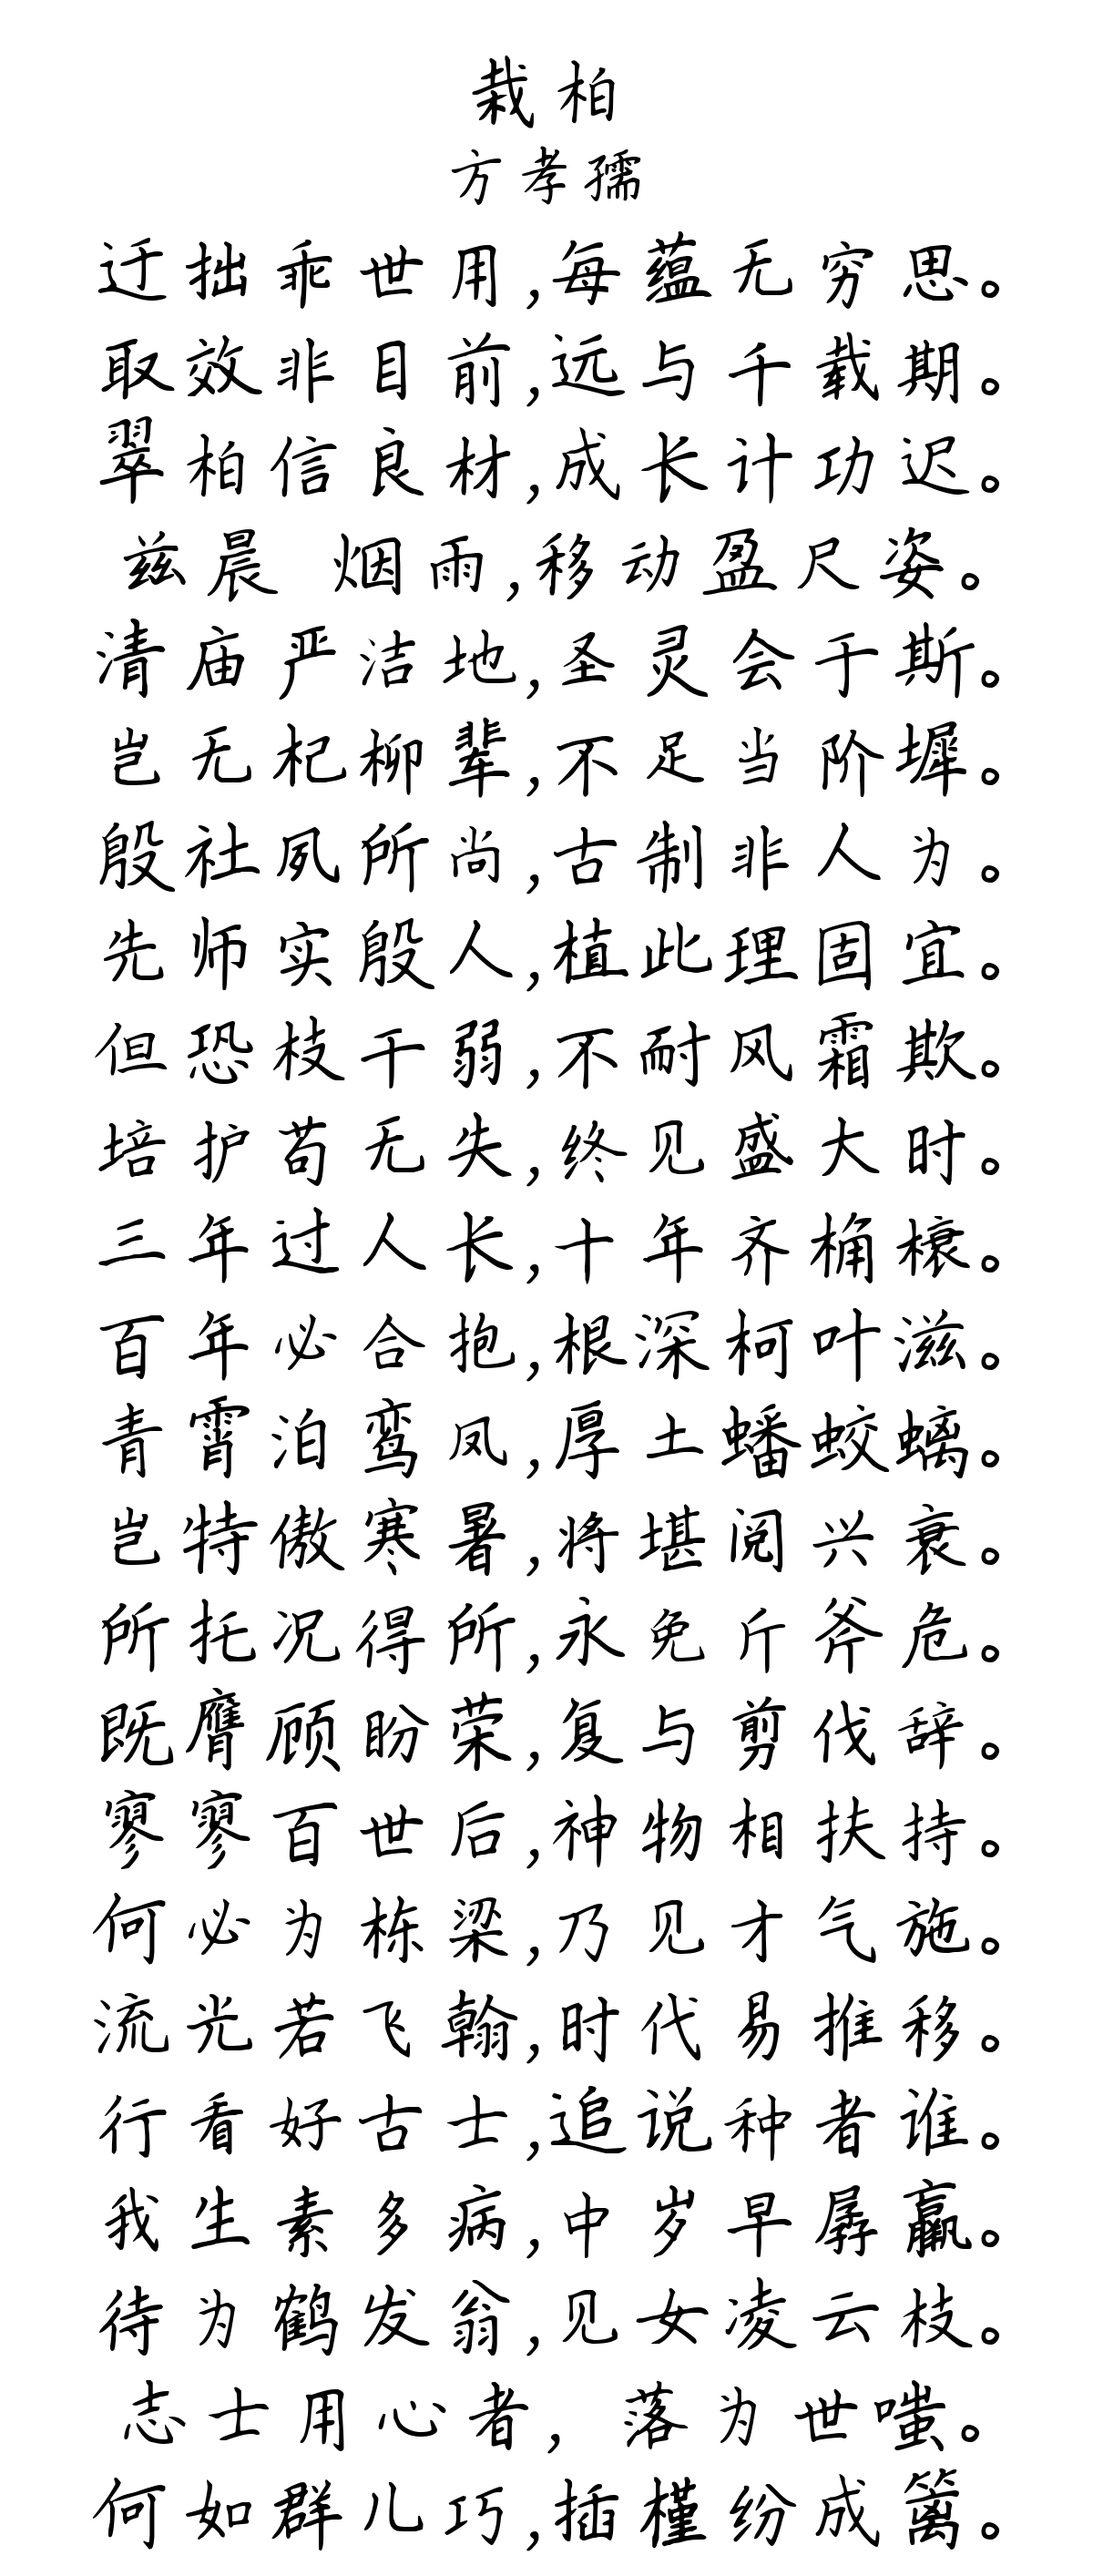 栽柏
方孝孺
迂拙乖世用,每蕴无穷思。
取效非目前,远与千载期。
翠柏信良材,成长计功迟。
兹晨 烟雨,移动盈尺姿。
清庙严洁地,圣灵会于斯。
岂无杞柳辈,不足当阶墀。
殷社夙所尚,古制非人为。
先师实殷人,植此理固宜。
但恐枝干弱,不耐风霜欺。
培护苟无失,终见盛大时。
三年过人长,十年齐桷榱。
百年必合抱,根深柯叶滋。
青霄泊鸾凤,厚土蟠蛟螭。
岂特傲寒暑,将堪阅兴衰。
所托况得所,永免斤斧危。
既膺顾盼荣,复与剪伐辞。
寥寥百世后,神物相扶持。
何必为栋梁,乃见才气施。
流光若飞翰,时代易推移。
行看好古士,追说种者谁。
我生素多病,中岁早孱羸。
待为鹤发翁,见女凌云枝。
志士用心者，落为世嗤。
何如群儿巧,插槿纷成篱。